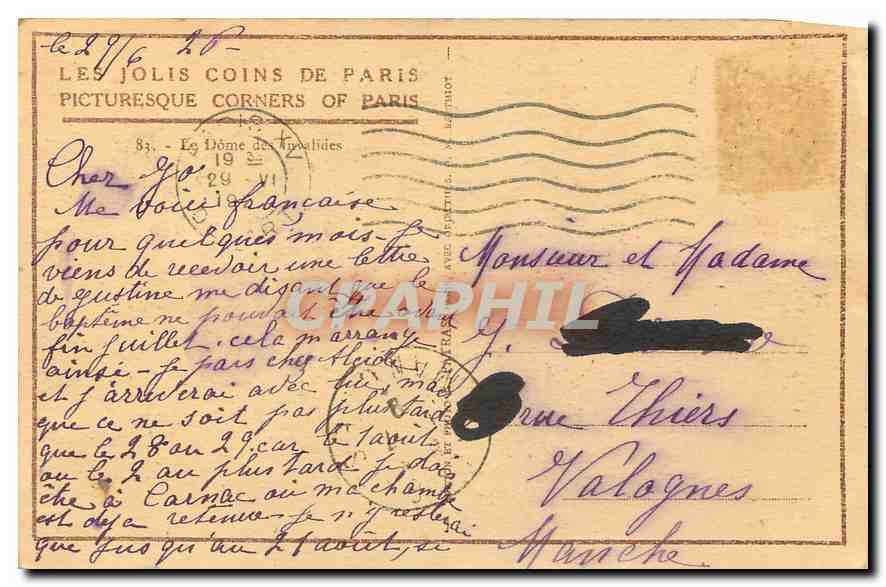 le 29/6 28-
LES JOLIS COINS DE PARIS
PICTURESQUE CORNERS OF PARIS
83. - Le Dôme des Invalides
19
29 VI
19
Cher Jo
Me voici française
pour quelques mois - Je
viens de recevoir une lettre
de gustine me disant que le
baptême ne pouvait être avant
fin juillet. cela m'arrange
ainsi - Je pars chez Alcide
et j'arriverai avec lui, mais
que ce ne soit pas plus tard
que le 28 ou 29. car le 1 août
ou le 2 au plus tard je dois
être à Carnac où ma chambre
est déja retenue - Je n'y resterai
que jusqu'au 21 août, si
Monsieur et Madame
J.
rue Thiers
Valognes
Manche
CPAPHIL